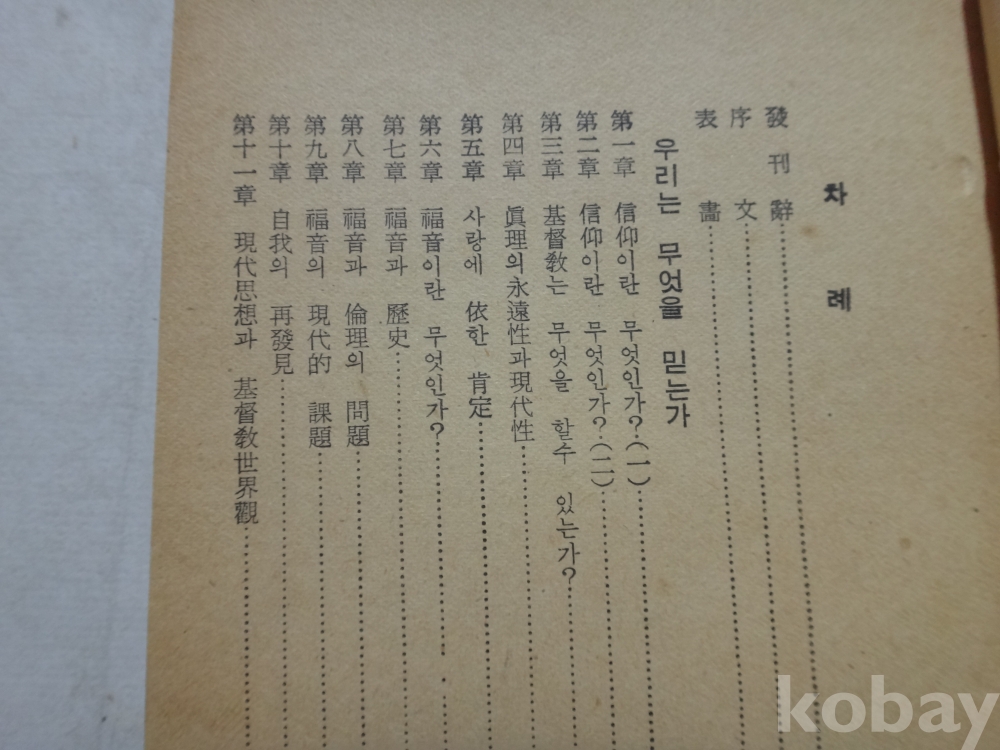 차례
發刊辭
序文
表畵
우리는 무엇을 믿는가
第一章 信仰이란 무엇인가?(一)
第二章 信仰이란 무엇인가?(二)
第三章 基督敎는 무엇을 할수 있는가?
第四章 眞理의永遠性과現代性
第五章 사랑에 依한 肯定
第六章 福音이란 무엇인가?
第七章 福音과 歷史
第八章 福音과 倫理의 問題
第九章 福音의 現代的 課題
第十章 自我의 再發見
第十一章 現代思想과 基督敎世界觀
kobay